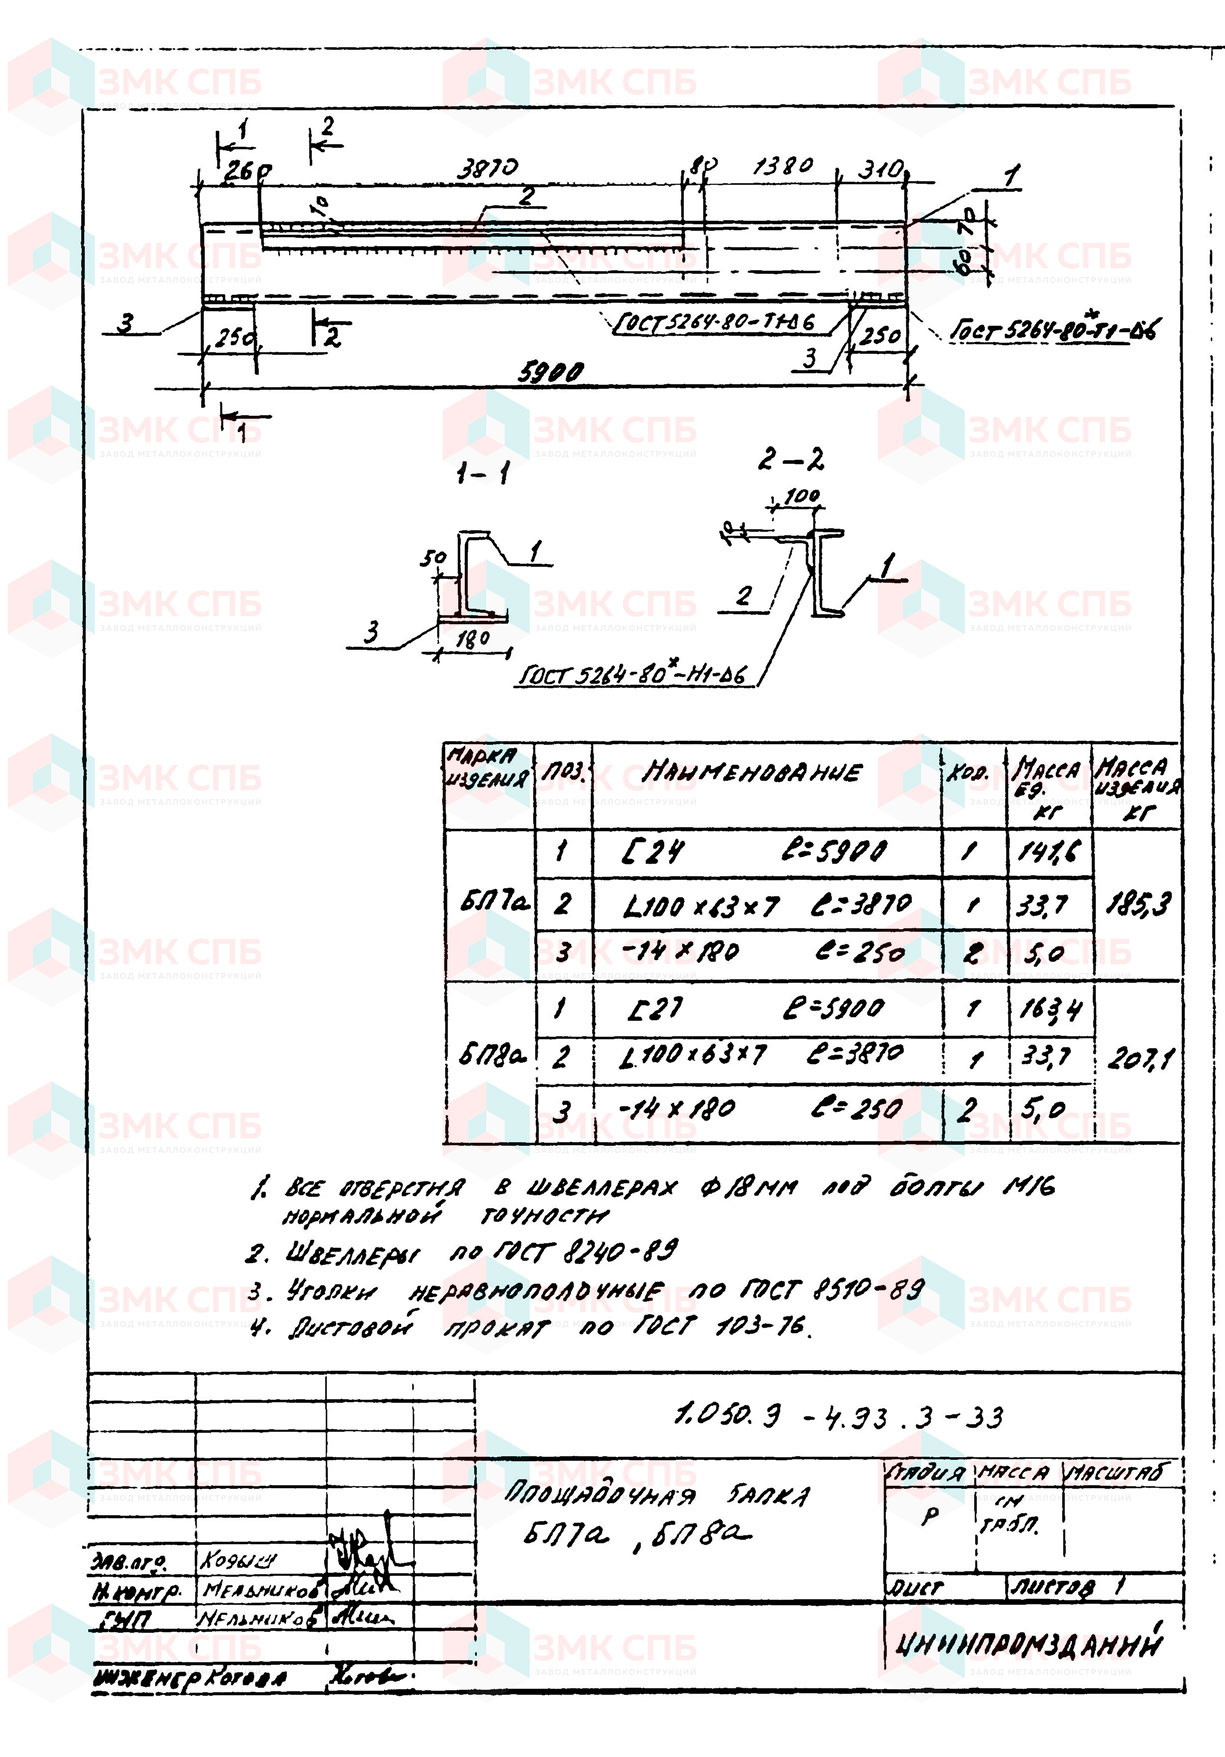 1 2
260 3870 80 1380 310 1
10 2 70
60
3 ГОСТ 5264-80-Т1-Δ6 ГОСТ 5264-80*-Т1-Δ6
250 2 3 250
5900
1
1-1 2-2
100
10
50 1 1
2
3 180
ГОСТ 5264-80*-Н1-Δ6
МАРКА ИЗДЕЛИЯ ПОЗ. НАИМЕНОВАНИЕ КОЛ. МАССА ЕД. КГ МАССА ИЗДЕЛИЯ КГ
БП7а 1 [24 ℓ=5900 1 141,6 185,3
2 L100×63×7 ℓ=3870 1 33,7
3 -14×180 ℓ=250 2 5,0
БП8а 1 [27 ℓ=5900 1 163,4 207,1
2 L100×63×7 ℓ=3870 1 33,7
3 -14×180 ℓ=250 2 5,0
1. ВСЕ ОТВЕРСТИЯ В ШВЕЛЛЕРАХ Ф18ММ ПОД БОЛТЫ М16
НОРМАЛЬНОЙ ТОЧНОСТИ
2. ШВЕЛЛЕРЫ ПО ГОСТ 8240-89
3. УГОЛКИ НЕРАВНОПОЛОЧНЫЕ ПО ГОСТ 8510-89
4. ЛИСТОВОЙ ПРОКАТ ПО ГОСТ 103-76.
1.050.9-4.93.3-33
ПЛОЩАДОЧНАЯ БАЛКА
БП7а, БП8а
СТАДИЯ МАССА МАСШТАБ
Р СМ ТАБЛ.
ЛИСТ ЛИСТОВ 1
ЦНИИПРОМЗДАНИЙ
ЗАВ.ОТД. КОДЫШ
Н.КОНТР. МЕЛЬНИКОВ
ГИП МЕЛЬНИКОВ
ИНЖЕНЕР КОТОВА
ЗМК СПБ
ЗАВОД МЕТАЛЛОКОНСТРУКЦИЙ